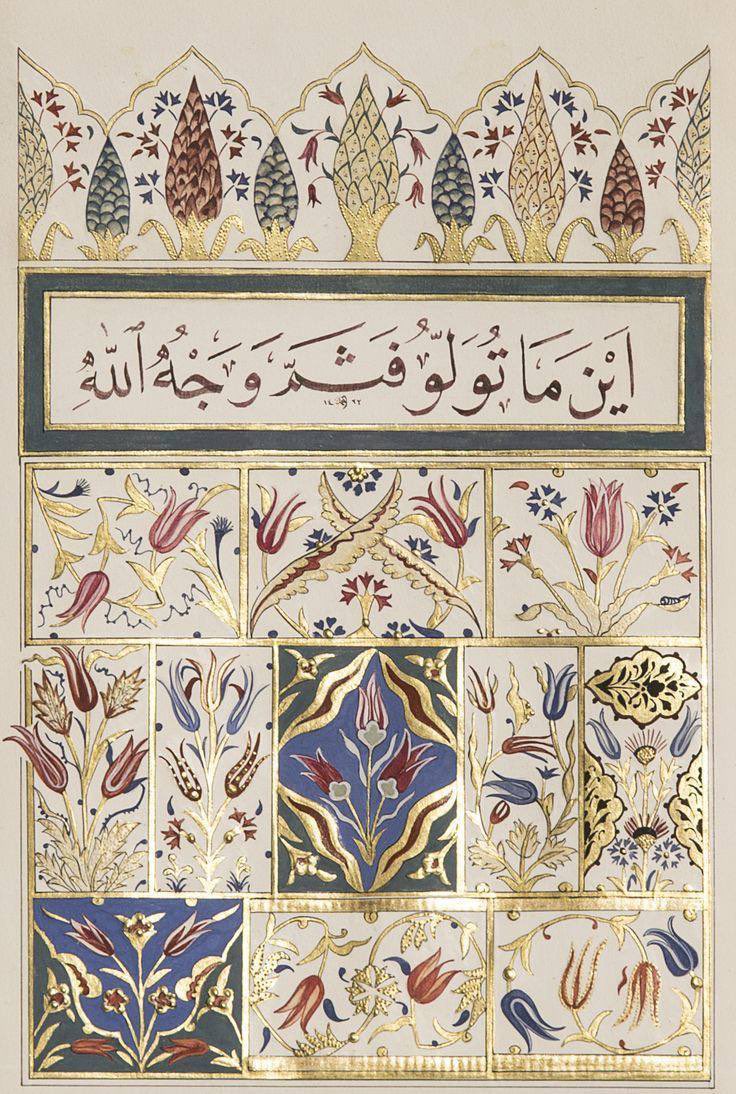 اَيْنَ مَا تُوَلُّو فَثَمَّ وَجْهُ ٱللّٰهِ